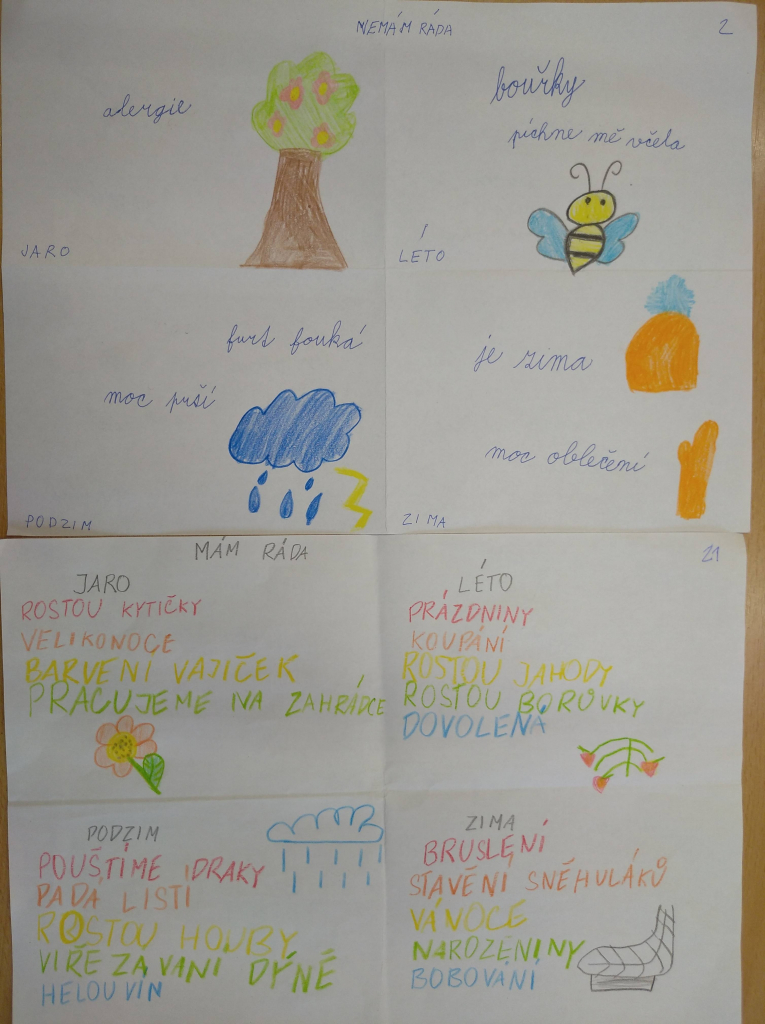 NEMÁM RÁDA
2
alergie
JARO
bouřky
píchne mě včela
LÉTO
furt fouká
moc prší
PODZIM
je zima
moc oblečení
ZIMA
MÁM RÁDA
21
JARO
ROSTOU KYTIČKY
VELIKONOCE
BARVENI VAJIČEK
PRACUJEME NA ZAHRÁDCE
LÉTO
PRÁZDNINY
KOUPÁNÍ
ROSTOU JAHODY
ROSTOU BORŮVKY
DOVOLENÁ
PODZIM
POUŠTÍME DRAKY
PADÁ LISTI
ROSTOU HOUBY
DÝNĚ
HELOUVÍN
ZIMA
BRUSLENÍ
STAVĚNÍ SNĚHULÁKŮ
VÁNOCE
NAROZENINY
BOBOVÁNÍ